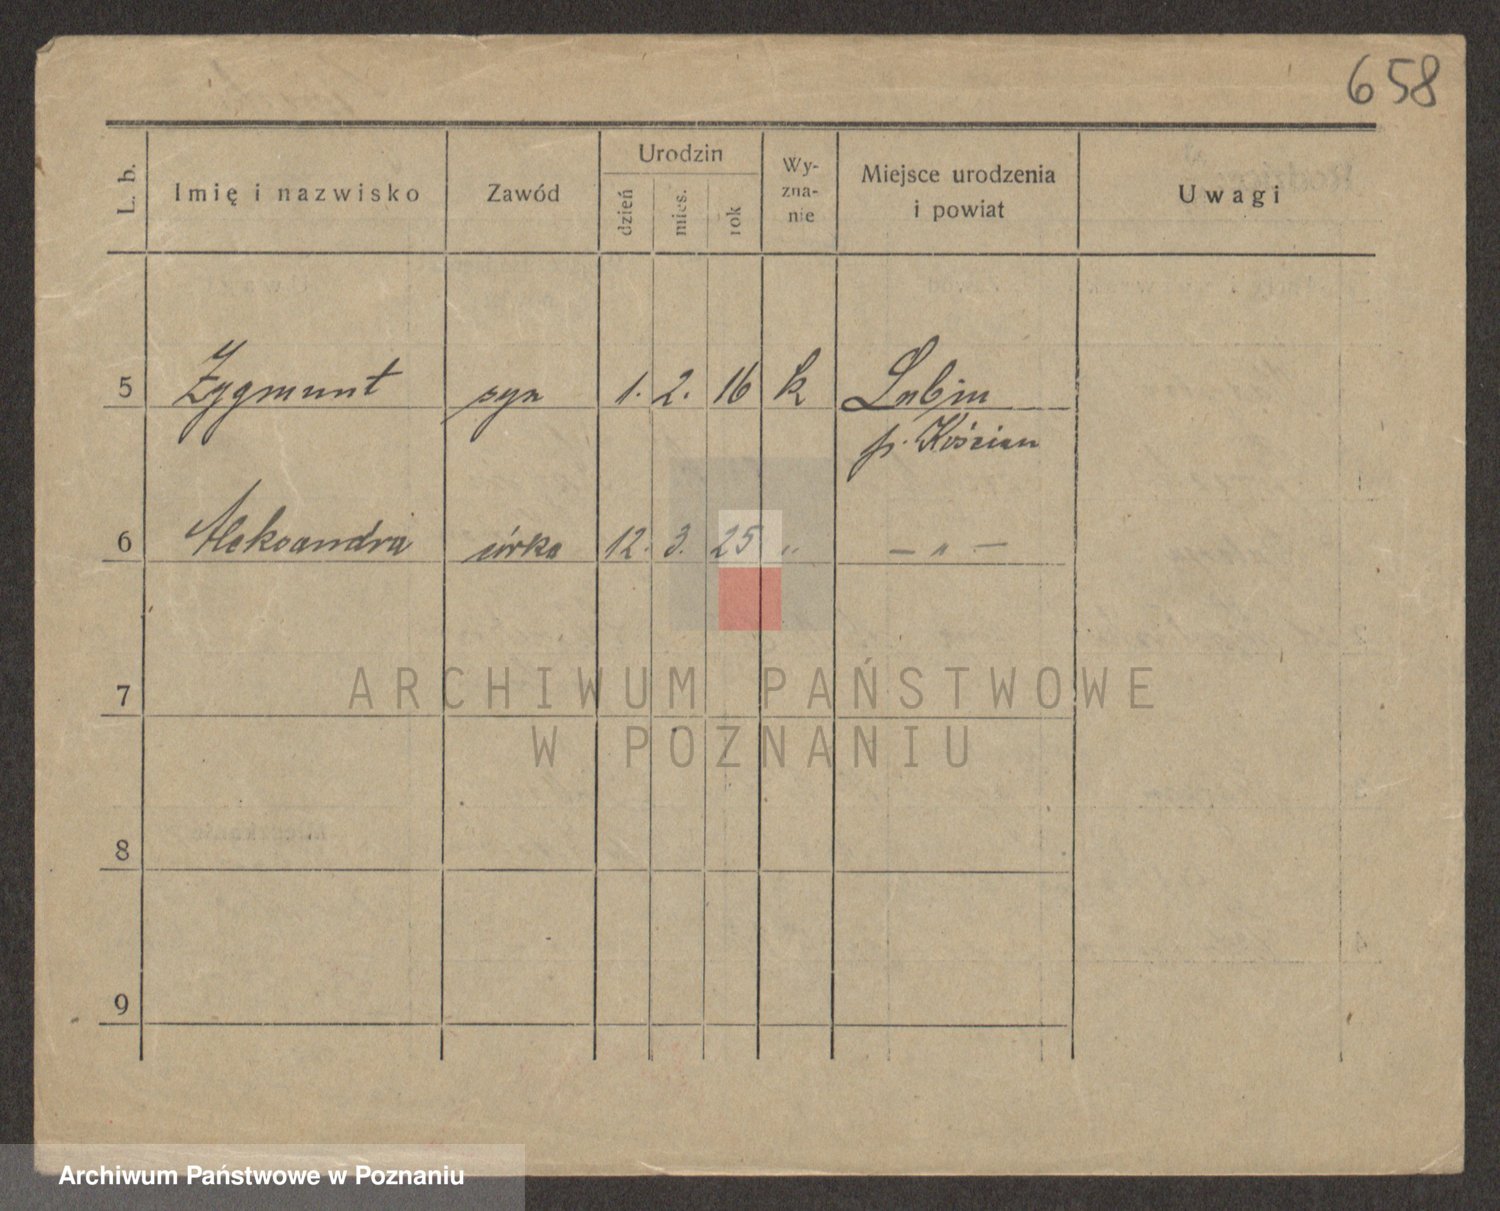 658
L. b. Imię i nazwisko Zawód Urodzin Wy- Miejsce urodzenia Uwagi
dzień mies. rok zna- i powiat
nie
5 Zygmunt syn 1. 2. 16 k Lubiń
p. Kościan
6 Aleksandra córka 12. 3. 25 „ — „ —
7
ARCHIWUM PAŃSTWOWE
W POZNANIU
8
9
Archiwum Państwowe w Poznaniu